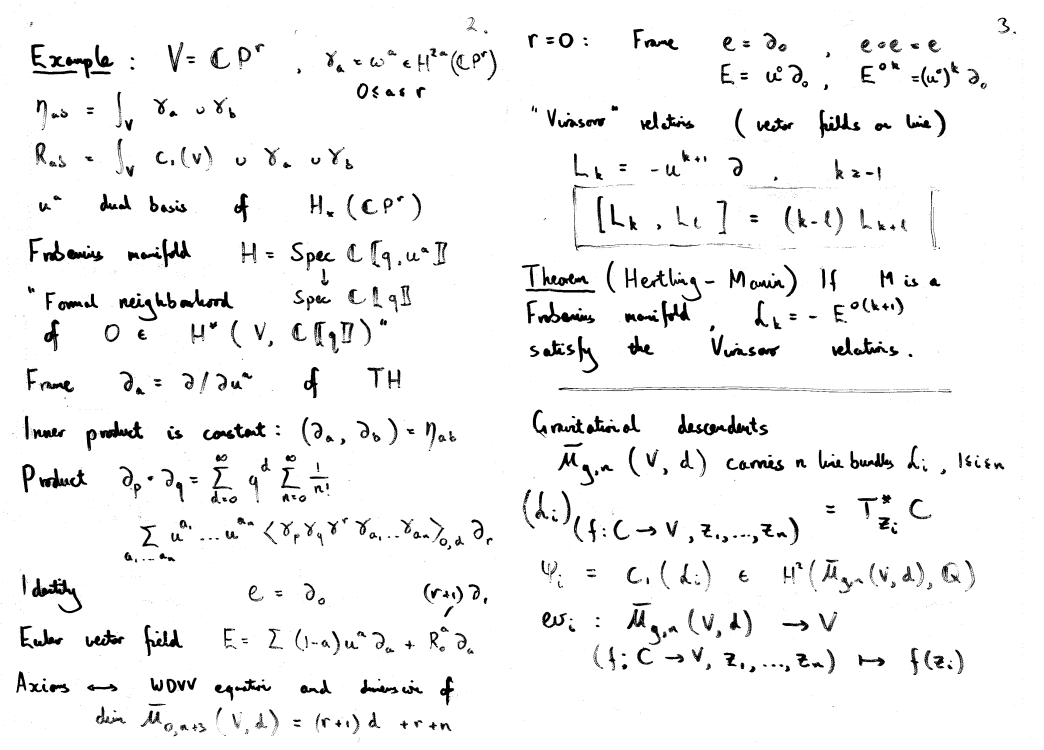 2.
Example : V = ℂP^r , γ_a = ω^a ∈ H^{2a}(ℂP^r)
0 ≤ a ≤ r
η_{ab} = ∫_V γ_a ∪ γ_b
R_{ab} = ∫_V c_1(V) ∪ γ_a ∪ γ_b
u^a dual basis of H_*(ℂP^r)
Frobenius manifold H = Spec ℂ⟦q, u^a⟧
↓
"Formal neighborhood Spec ℂ⟦q⟧
of 0 ∈ H^*(V, ℂ⟦q⟧)"
Frame ∂_a = ∂/∂u^a of TH
Inner product is constant : (∂_a, ∂_b) = η_{ab}
Product ∂_p ∘ ∂_q = Σ_{d=0}^∞ q^d Σ_{n=0}^∞ 1/n!
Σ_{a_1...a_n} u^{a_1} ... u^{a_n} ⟨γ_p γ_q γ^r γ_{a_1} ... γ_{a_n}⟩_{0,d} ∂_r
Identity e = ∂_0 (r+1) ∂_1
Euler vector field E = Σ (1-a) u^a ∂_a + R_0^a ∂_a
Axioms ↔ WDVV equation and dimension of
dim M̄_{0,n+3}(V,d) = (r+1)d + r + n
3.
r = 0 : Frame e = ∂_0 , e∘e = e
E = u^0 ∂_0 , E^{∘k} = (u^0)^k ∂_0
"Virasoro" relations (vector fields on line)
L_k = -u^{k+1} ∂ , k ≥ -1
[L_k , L_l] = (k-l) L_{k+l}
Theorem (Hertling-Manin) If M is a
Frobenius manifold, ℒ_k = -E^{∘(k+1)}
satisfy the Virasoro relations.
Gravitational descendents
M̄_{g,n}(V,d) carries n line bundles ℒ_i, 1≤i≤n
(ℒ_i)_{(f: C → V, z_1,...,z_n)} = T^*_{z_i} C
ψ_i = c_1(ℒ_i) ∈ H^2(M̄_{g,n}(V,d), ℚ)
ev_i : M̄_{g,n}(V,d) → V
(f: C → V, z_1, ..., z_n) ↦ f(z_i)